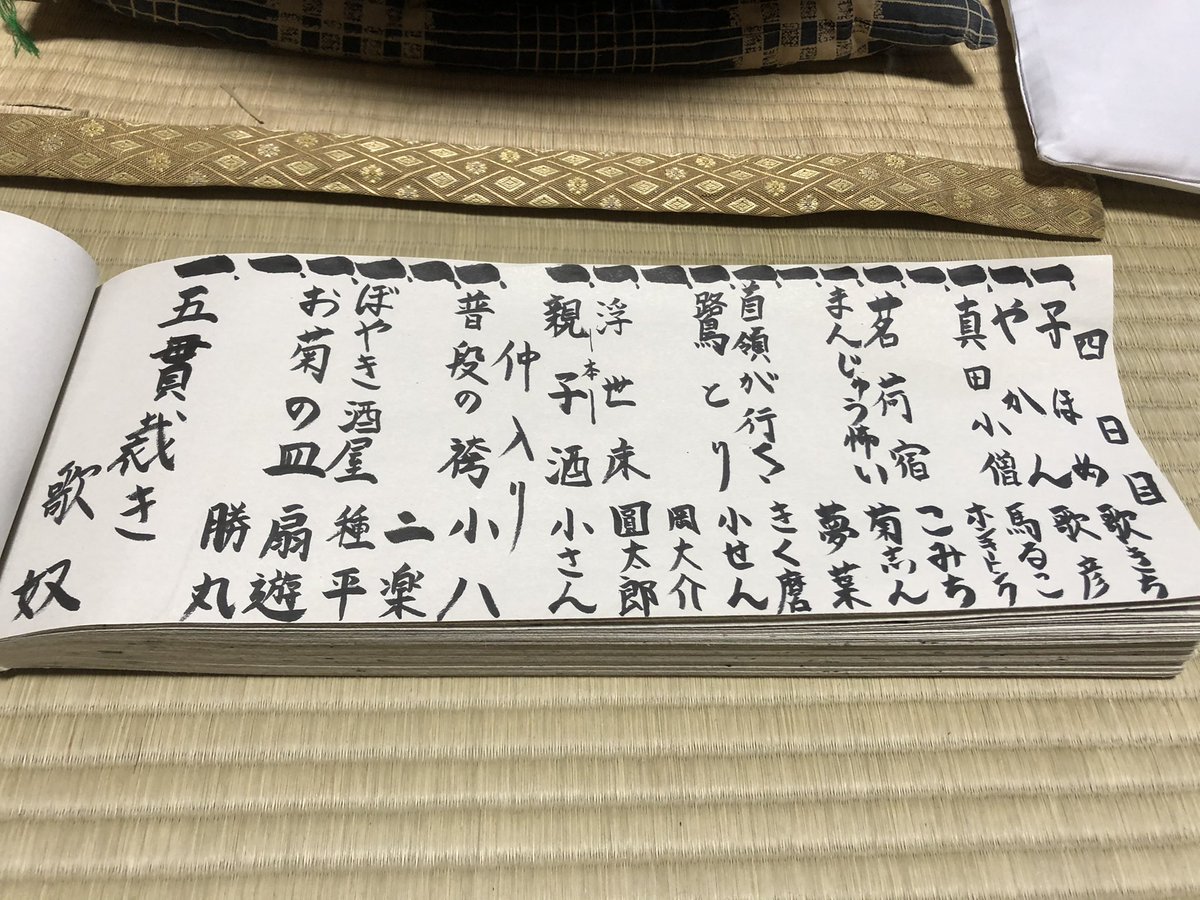 四日目
一、子ほめ 歌きち
一、やかん 歌彦
一、真田小僧 馬るこ
一、 ホンキートンク
一、茗荷宿 こみち
一、まんじゅう怖い 菊志ん
一、 夢葉
一、首領が行く きく麿
一、鷺とり 小せん
一、 岡大介
一、浮世床 -本- 圓太郎
一、親子酒 小さん
仲入り
一、普段の袴 小八
一、 二楽
一、ぼやき酒屋 種平
一、お菊の皿 扇遊
一、 勝丸
一、五貫裁き 歌奴